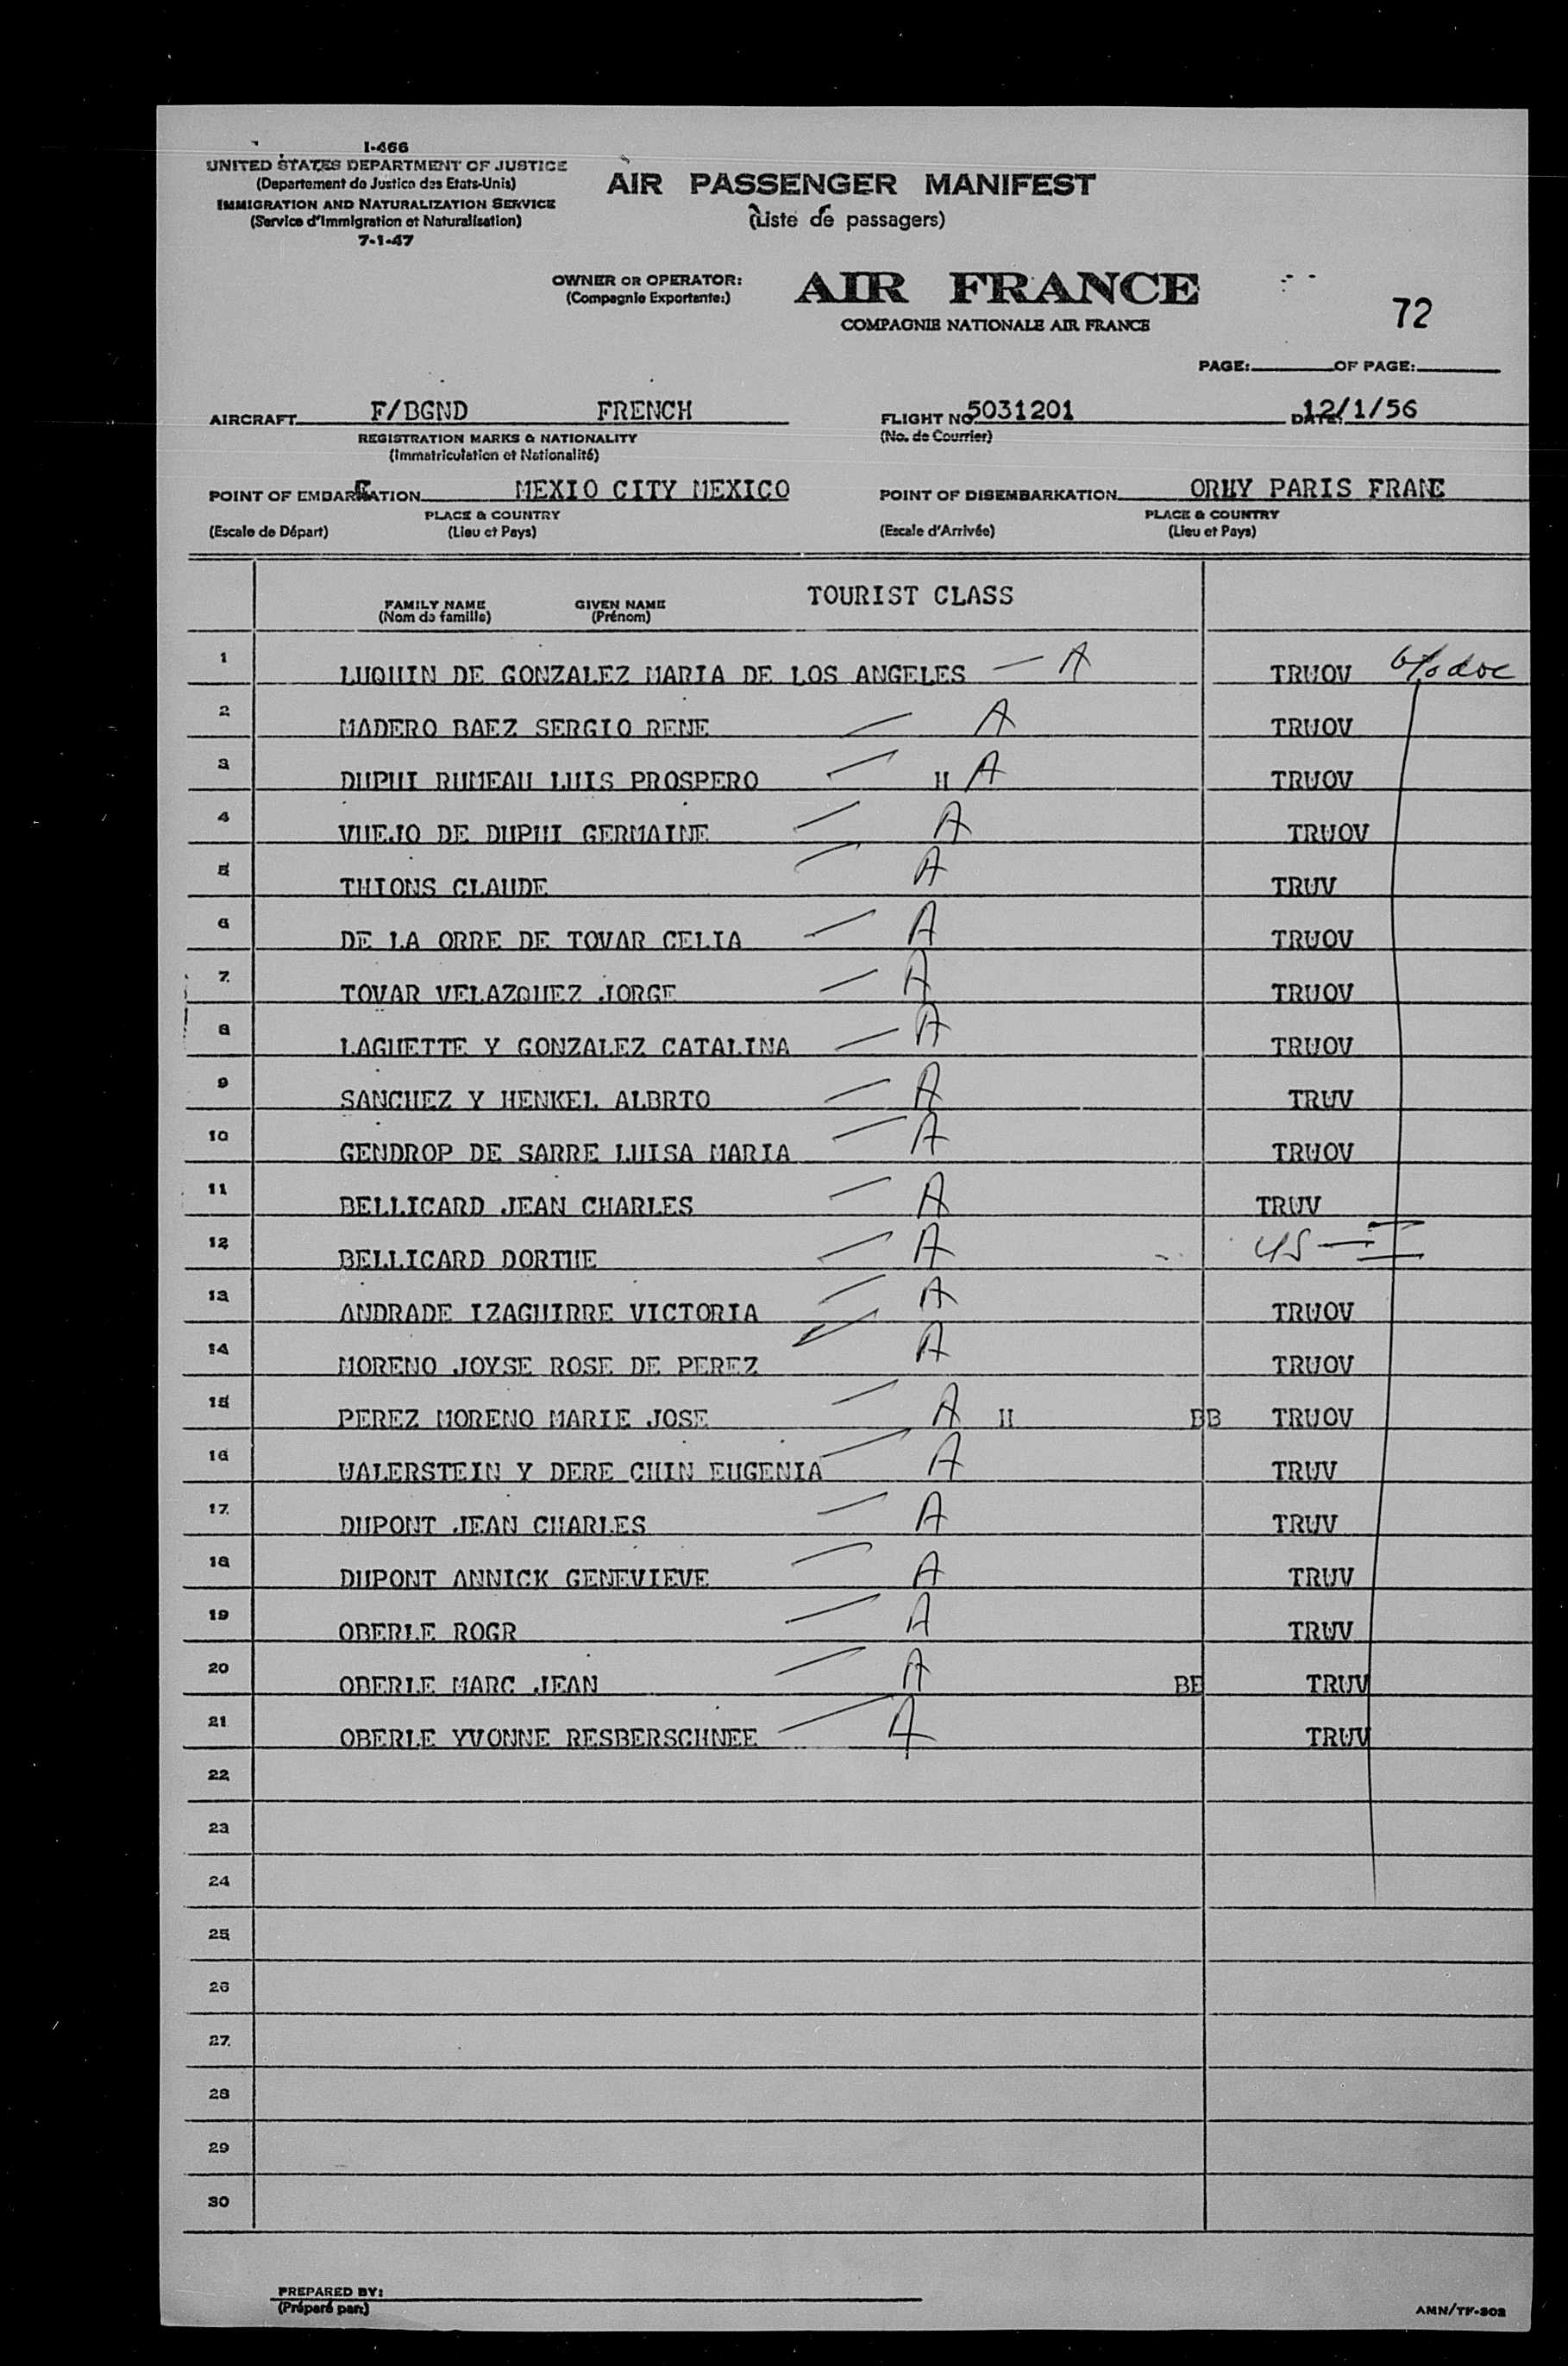 I-466
UNITED STATES DEPARTMENT OF JUSTICE
(Departement de Justice des Etats-Unis)
IMMIGRATION AND NATURALIZATION SERVICE
(Service d'Immigration et Naturalisation)
7-1-47
AIR PASSENGER MANIFEST
(Liste de passagers)
OWNER OR OPERATOR:
(Compagnie Exportante:)
AIR FRANCE
COMPAGNIE NATIONALE AIR FRANCE
72
PAGE: OF PAGE:
AIRCRAFT F/BGND FRENCH FLIGHT NO 5031201 DATE: 12/1/56
REGISTRATION MARKS & NATIONALITY (No. de Courrier)
(Immatriculation et Nationalité)
POINT OF EMBARKATION MEXIO CITY MEXICO POINT OF DISEMBARKATION ORLY PARIS FRANE
PLACE & COUNTRY PLACE & COUNTRY
(Escale de Départ) (Lieu et Pays) (Escale d'Arrivée) (Lieu et Pays)
TOURIST CLASS
FAMILY NAME GIVEN NAME
(Nom de famille) (Prénom)
1 LUQUIN DE GONZALEZ MARIA DE LOS ANGELES — A TRUOV
2 MADERO BAEZ SERGIO RENE — A TRUOV
3 DUPUI RUMEAU LUIS PROSPERO — H A TRUOV
4 VUEJO DE DUPUI GERMAINE — A TRUOV
5 THIONS CLAUDE — A TRUV
6 DE LA ORRE DE TOVAR CELIA — A TRUOV
7 TOVAR VELAZQUEZ JORGE — A TRUOV
8 LAGUETTE Y GONZALEZ CATALINA — A TRUOV
9 SANCHEZ Y HENKEL ALBRTO — A TRUV
10 GENDROP DE SARRE LUISA MARIA — A TRUOV
11 BELLICARD JEAN CHARLES — A TRUV
12 BELLICARD DORTHE — A US — I
13 ANDRADE IZAGUIRRE VICTORIA — A TRUOV
14 MORENO JOYSE ROSE DE PEREZ — A TRUOV
15 PEREZ MORENO MARIE JOSE — A H BB TRUOV
16 WALERSTEIN Y DERE CHIN EUGENIA — A TRUV
17 DUPONT JEAN CHARLES — A TRUV
18 DUPONT ANNICK GENEVIEVE — A TRUV
19 OBERLE ROGR — A TRUV
20 OBERLE MARC JEAN — A BB TRUV
21 OBERLE YVONNE RESBERSCHNEE — A TRUV
22
23
24
25
26
27
28
29
30
PREPARED BY:
(Préparé par:)
AMN/TF-302